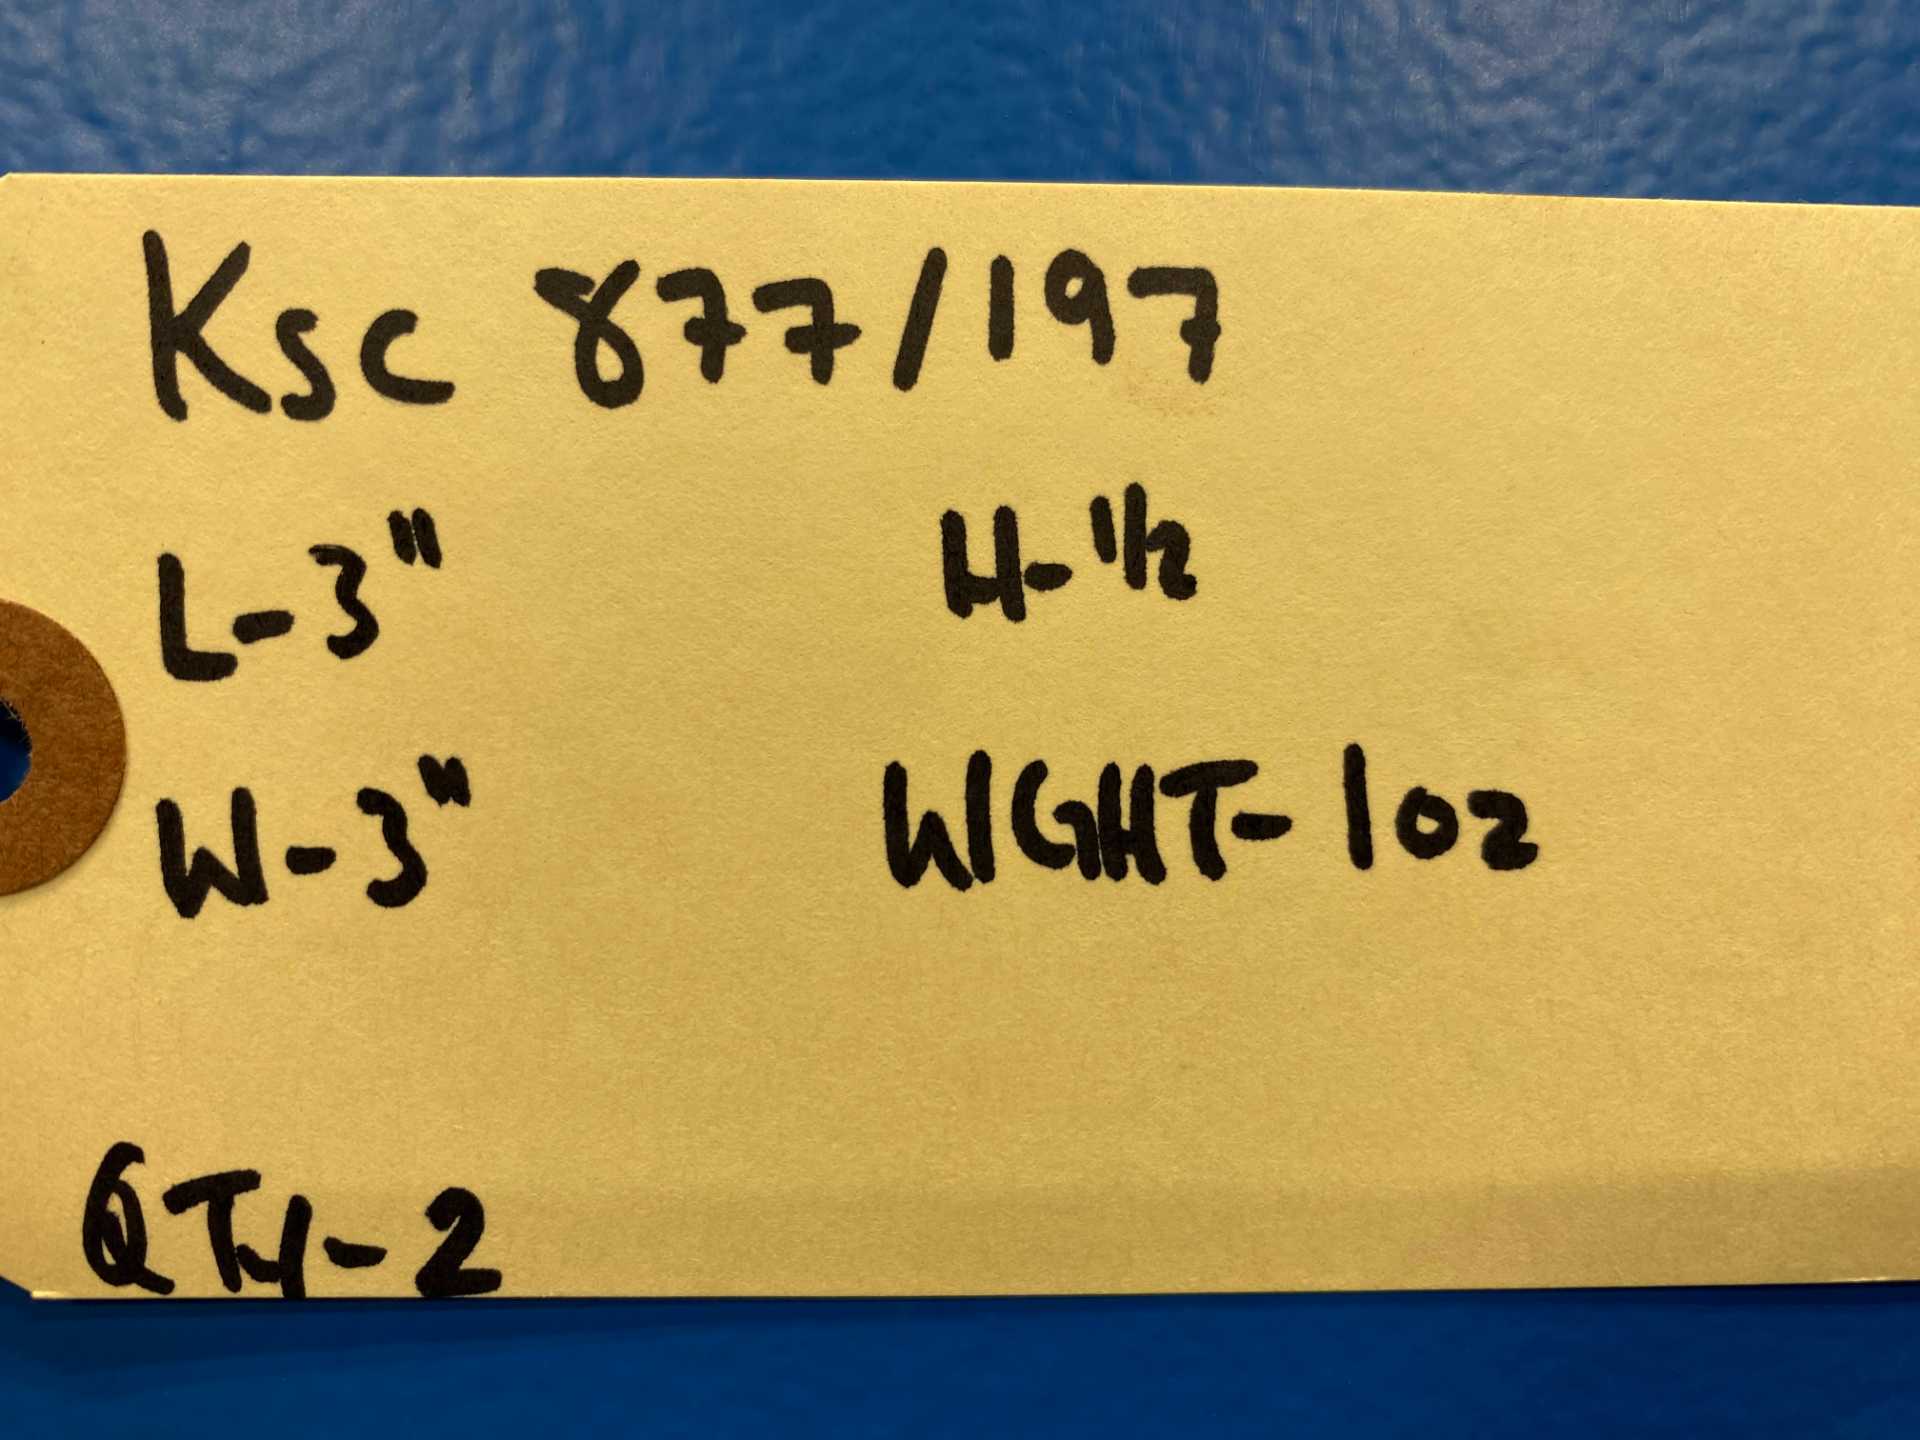 Ksc 877/197
L-3" H-1/2
W-3" WGHT-1oz
QTY-2